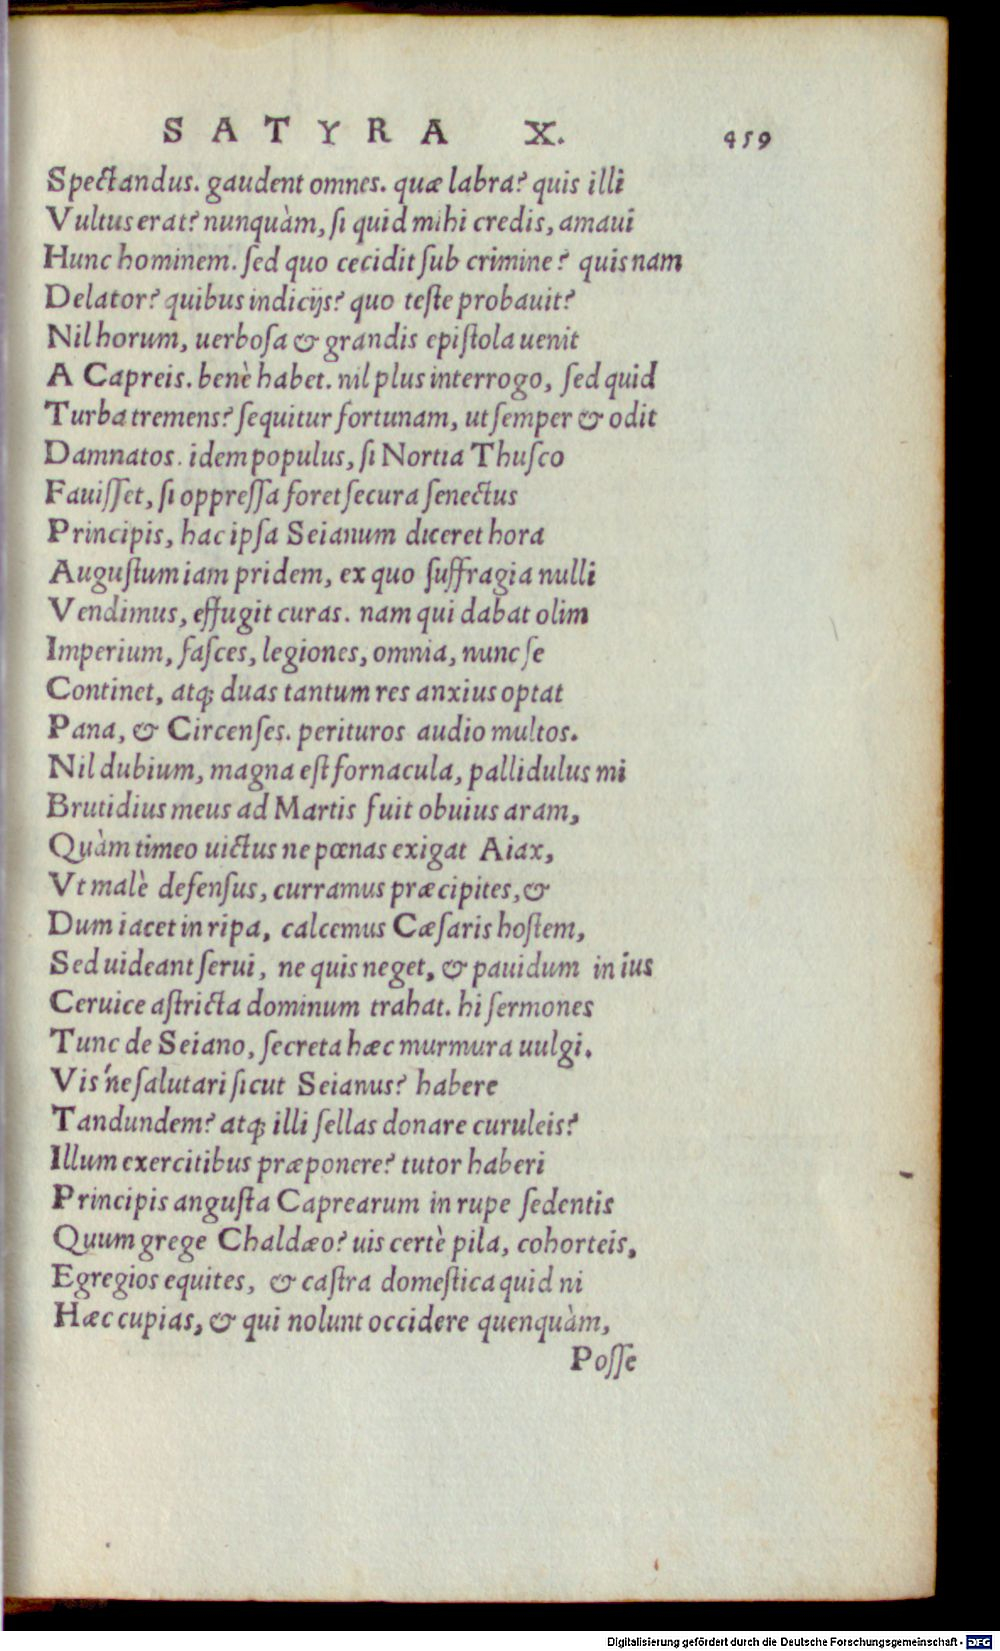 SATYRA X. 459
Spectandus. gaudent omnes. quæ labra? quis illi
Vultus erat? nunquàm, ſi quid mihi credis, amaui
Hunc hominem. ſed quo cecidit ſub crimine? quisnam
Delator? quibus indicijs? quo teſte probauit?
Nil horum, uerboſa & grandis epiſtola uenit
A Capreis. benè habet. nil plus interrogo, ſed quid
Turba tremens? ſequitur fortunam, ut ſemper & odit
Damnatos. idem populus, ſi Nortia Thuſco
Fauiſſet, ſi oppreſſa foret ſecura ſenectus
Principis, hac ipſa Seianum diceret hora
Auguſtum iam pridem, ex quo ſuffragia nulli
Vendimus, effugit curas. nam qui dabat olim
Imperium, faſces, legiones, omnia, nunc ſe
Continet, atq; duas tantum res anxius optat
Pana, & Circenſes. perituros audio multos.
Nil dubium, magna eſt fornacula, pallidulus mi
Brutidius meus ad Martis fuit obuius aram,
Quàm timeo uictus ne pœnas exigat Aiax,
Vt malè defenſus, curramus præcipites, &
Dum iacet in ripa, calcemus Cæſaris hoſtem,
Sed uideant ſerui, ne quis neget, & pauidum in ius
Ceruice aſtricta dominum trahat. hi ſermones
Tunc de Seiano, ſecreta hæc murmura uulgi.
Vis'ne ſalutari ſicut Seianus? habere
Tandundem? atq; illi ſellas donare curuleis?
Illum exercitibus præponere? tutor haberi
Principis anguſta Caprearum in rupe ſedentis
Quum grege Chaldæo? uis certè pila, cohorteis,
Egregios equites, & caſtra domeſtica quid ni
Hæc cupias, & qui nolunt occidere quenquàm,
Poſſe
Digitalisierung gefördert durch die Deutsche Forschungsgemeinschaft - DFG